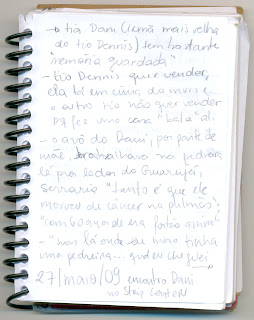 → a tia Dani (irmã mais velha
do tio Dennis) tem bastante
"memória guardada"
- tio Dennis quer vender,
ela tá em cima do muro e
o outro tio não quer vender
fez uma casa "bala" ali
- o avô do Dani, por parte de
mãe, trabalhava na pedreira
lá pro lados do Guarujá,
serraria "tanto é que ele
morreu de câncer no pulmão".
"com 60 anos de era fortão assim"
- "mas lá onde eu moro tinha
uma pedreira... quando cheguei
27/maio/09 encontro Dani
no Strip Center